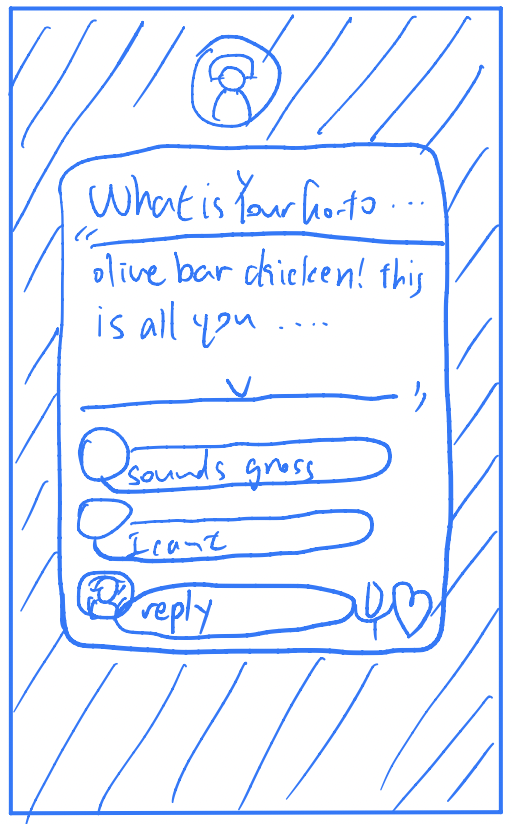 What is Your Go-to ...
“
olive bar chicken! this
is all you ....
”
sounds gross
I cant
reply